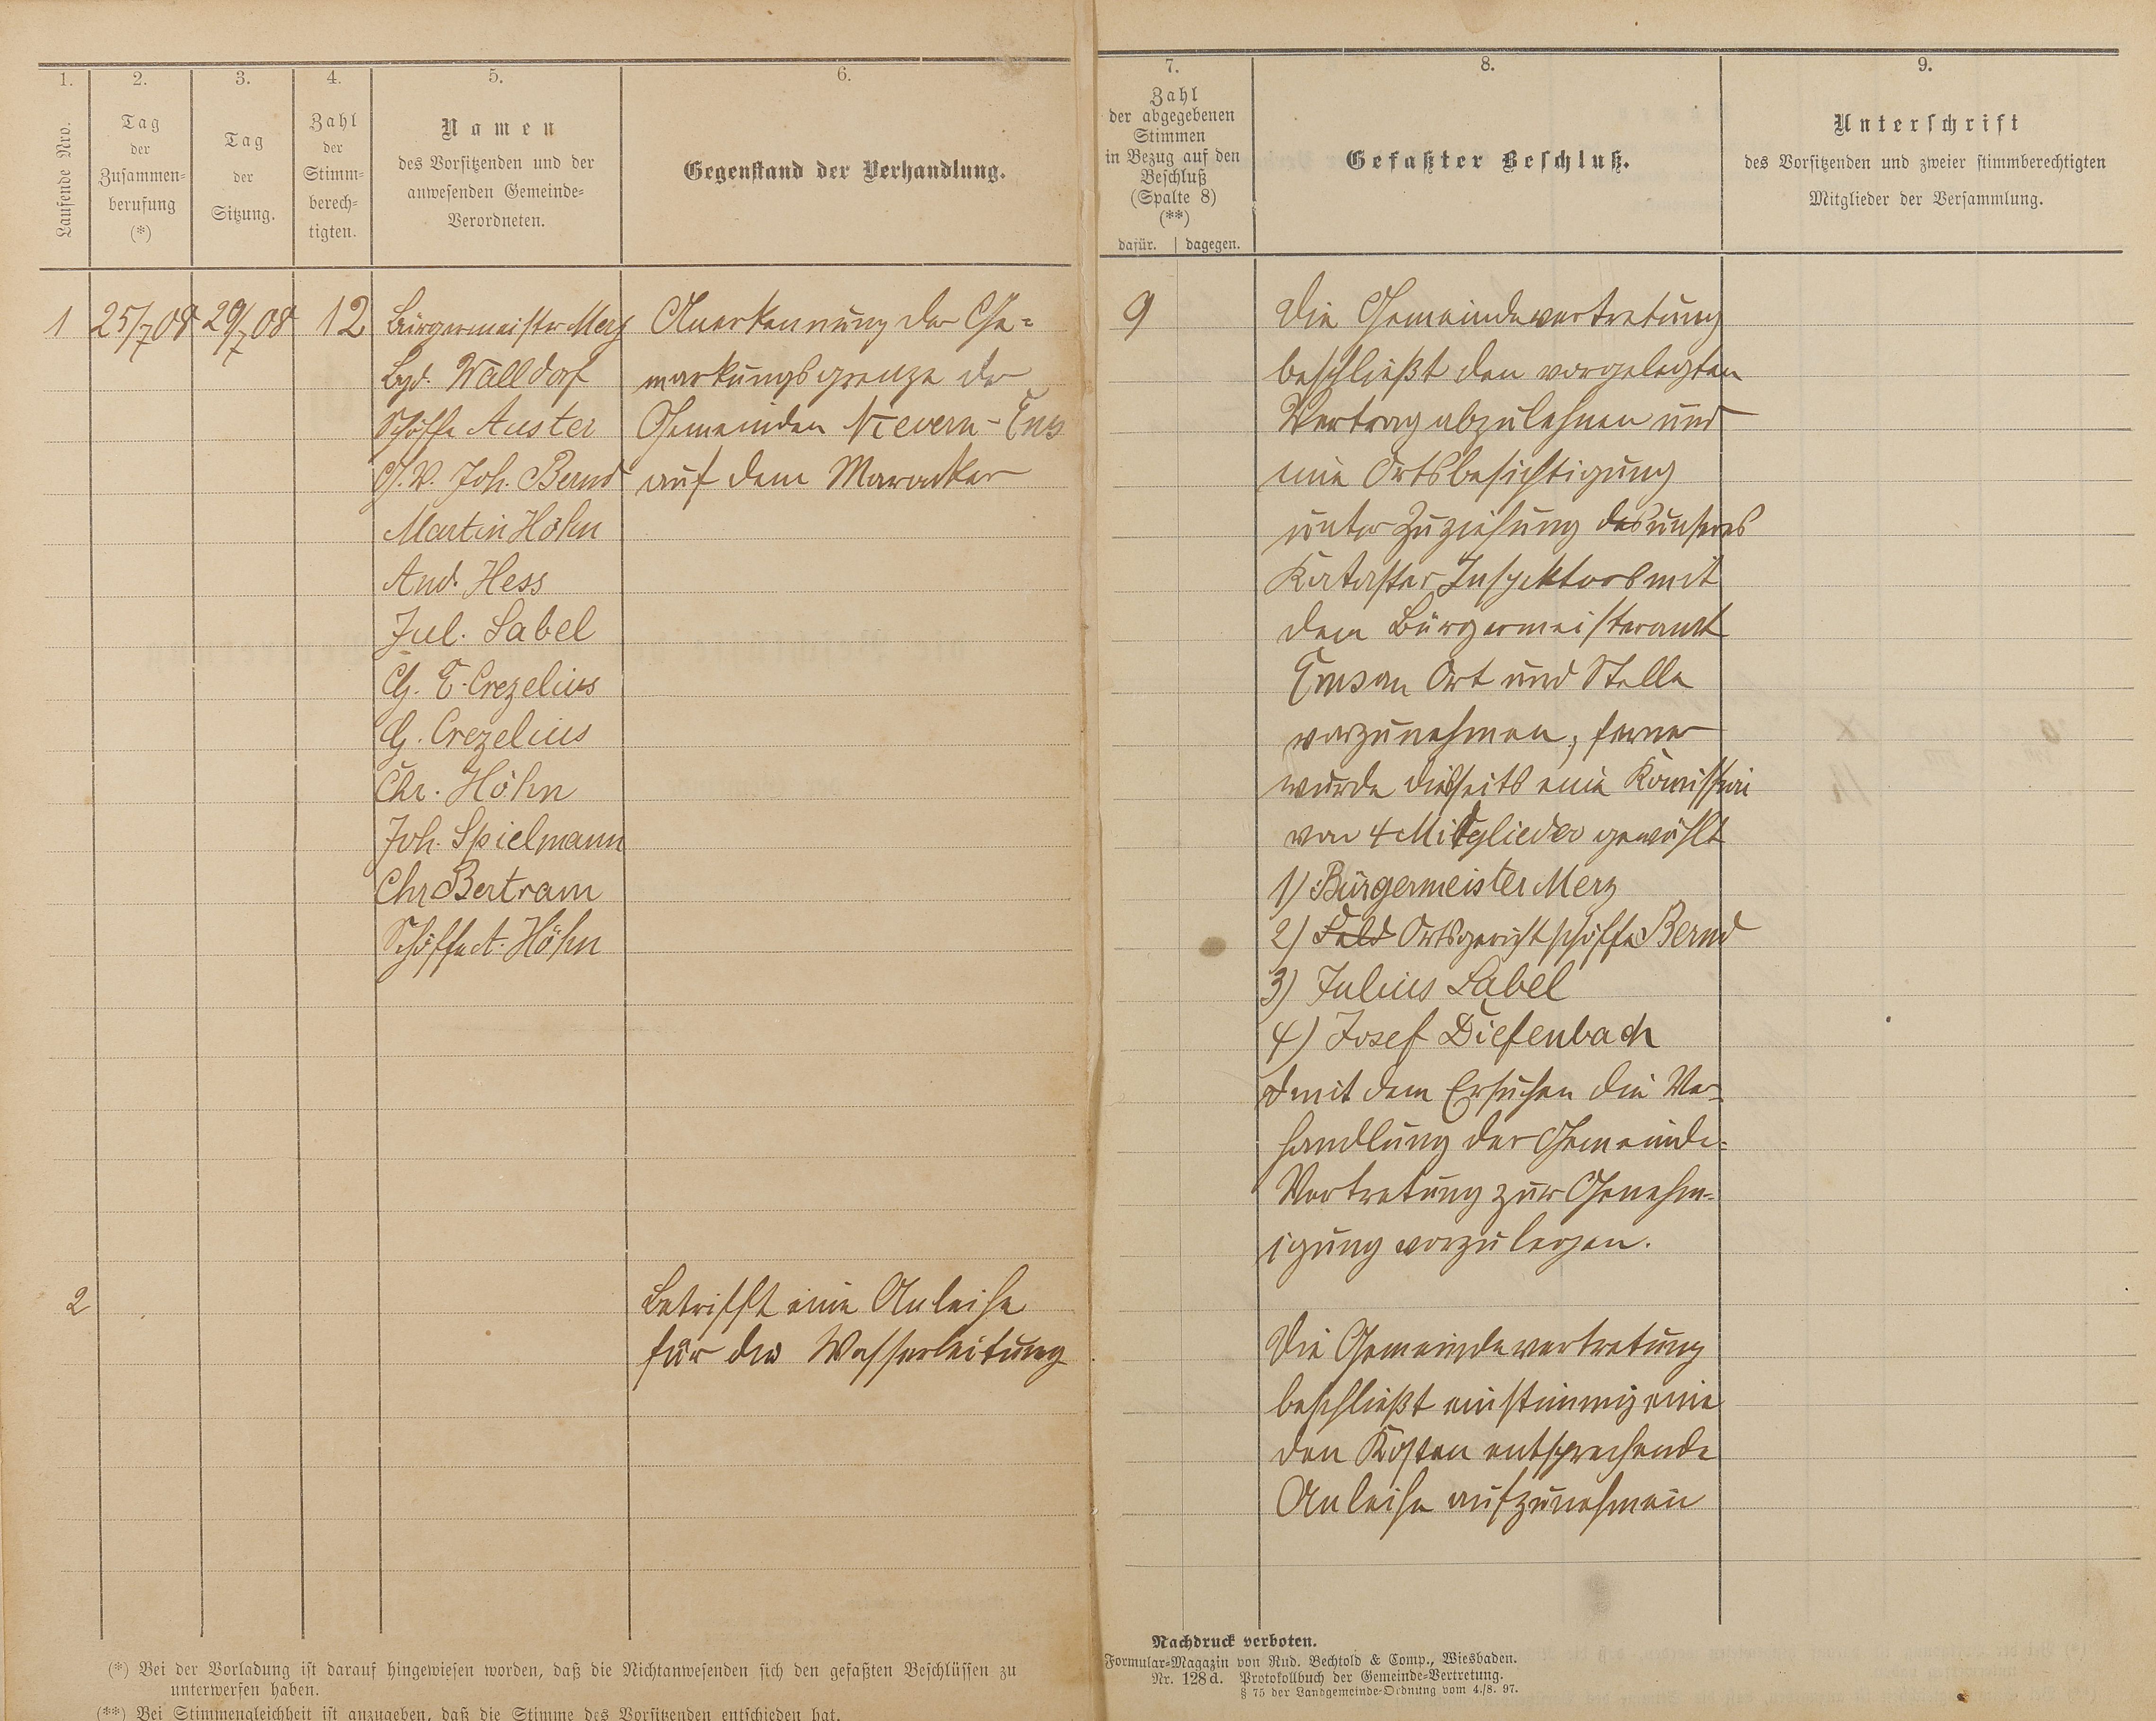 1.
2.
3.
4.
5.
6.
7.
8.
9.
Laufende Nro.
Tag
der
Zusammen-
berufung
(*)
Tag
der
Sitzung.
Zahl
der
Stimm-
berech-
tigten.
Namen
des Vorsitzenden und der
anwesenden Gemeinde-
Verordneten.
Gegenstand der Verhandlung.
Zahl
der abgegebenen
Stimmen
in Bezug auf den
Beschluß
(Spalte 8)
(**)
dafür. | dagegen.
Gefaßter Beschluß.
Unterschrift
des Vorsitzenden und zweier stimmberechtigten
Mitglieder der Versammlung.
1
25/7 08
29/7 08
12
Bürgermeister Merz
Walldorf
Schöffe Auster
G. V. Joh. Bernd
Martin Höhn
And. Hess
Jul. Sabel
G. E. Crezelius
G. Crezelius
Chr. Höhn
Joh. Spielmann
Chr Bertram
Schöffe A. Höhn
Anerkennung der Ge-
markungsgrenze der
Gemeinden Nievern-Ems
auf dem
9
Die Gemeindevertretung
beschließt den vorgelegten
Vertrag abzulehnen und
eine Ortsbesichtigung
unter Zuziehung des unseres
Kataster Inspektors mit
dem Bürgermeisteramt
Ems an Ort und Stelle
vorzunehmen, ferner
wurde diesseits eine
von 4 Mitglieder gewählt
1) Bürgermeister Merz
2) Feld Ortsgerichtschöffe Bernd
3) Julius Sabel
4) Josef Diefenbach
mit dem Ersuchen die Ver-
handlung der Gemeinde-
Vertretung zur Genehm-
igung vorzulegen.
2
Betrifft eine Anleihe
für die Wasserleitung
Die Gemeindevertretung
beschließt einstimmig eine
den Kosten entsprechende
Anleihe aufzunehmen
(*) Bei der Vorladung ist darauf hingewiesen worden, daß die Nichtanwesenden sich den gefaßten Beschlüssen zu
unterwerfen haben.
(**) Bei Stimmengleichheit ist anzugeben, daß die Stimme des Vorsitzenden entschieden hat.
Nachdruck verboten.
Formular-Magazin von Rud. Bechtold & Comp., Wiesbaden.
Nr. 128d. Protokollbuch der Gemeinde-Vertretung.
§ 75 der Landgemeinde-Ordnung vom 4./8. 97.